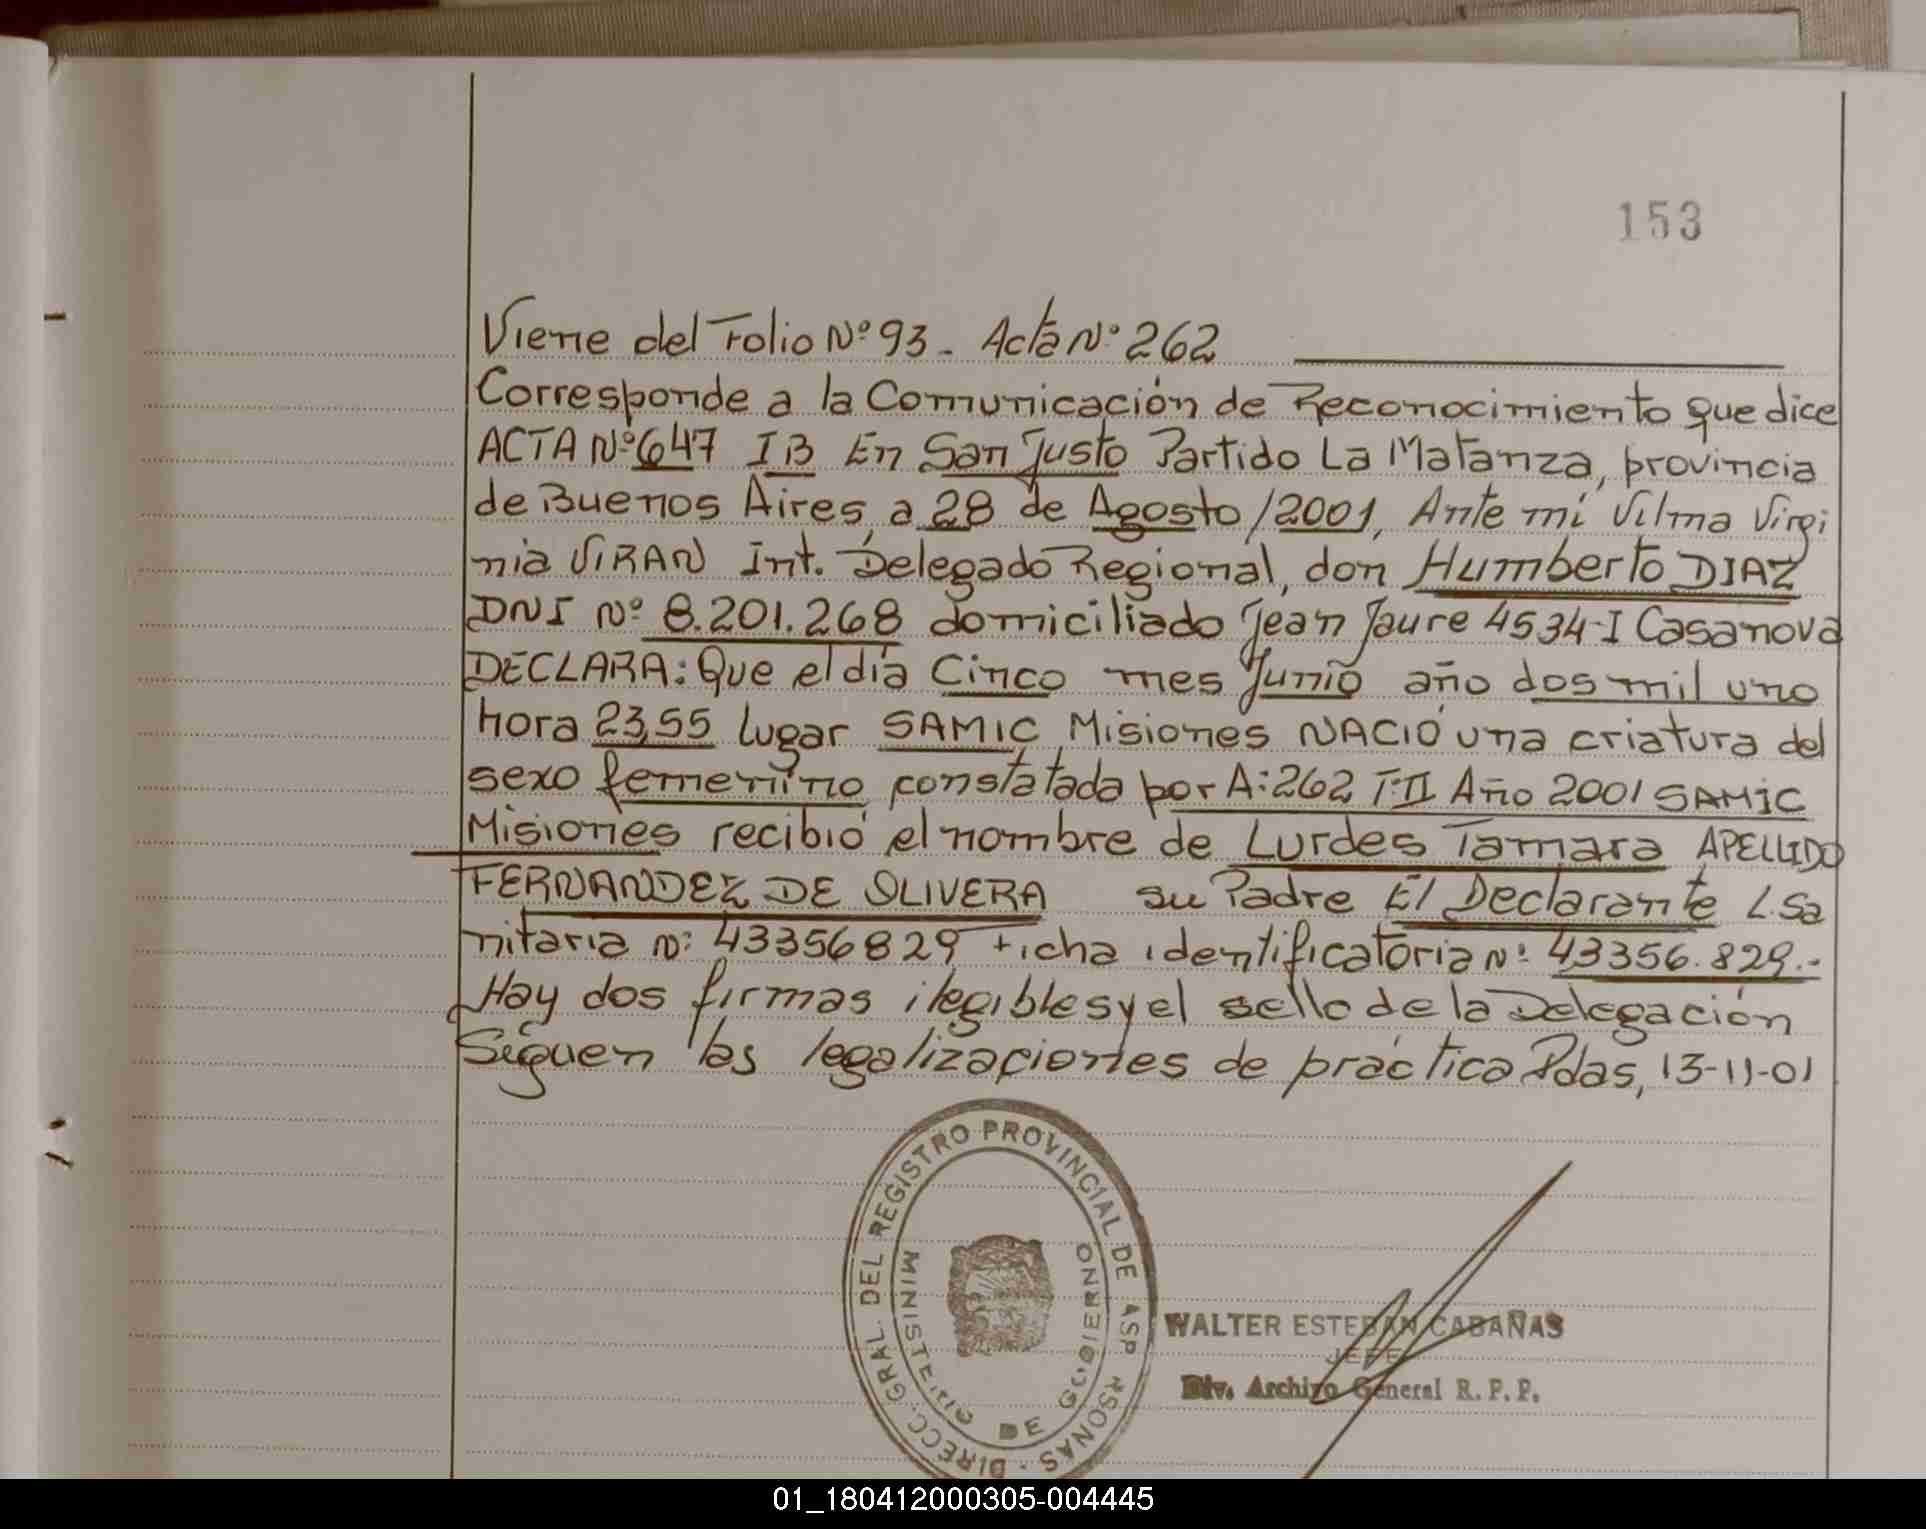 153
Viene del Folio Nº 93 - Acta Nº 262
Corresponde a la Comunicación de Reconocimiento que dice
ACTA Nº 647 IB En San Justo Partido La Matanza, provincia
de Buenos Aires, a 28 de Agosto/2001, Ante mí Vilma Virgi
nia VIRAN Int. Delegado Regional, don Humberto DIAZ
DNI Nº 8.201.268 domiciliado Jean Jaure 4534-I Casanova
DECLARA: Que el día Cinco mes Junio año dos mil uno
hora 23,55 lugar SAMIC Misiones NACIÓ una criatura del
sexo femenino constatada por A:262 T:II Año 2001 SAMIC
Misiones recibió el nombre de Lurdes Tamara APELLIDO
FERNANDEZ DE OLIVERA su Padre El Declarante L. Sa
nitaria Nº 43356829 Ficha identificatoria Nº 43356.829.-
Hay dos firmas ilegibles y el sello de la Delegación
Siguen las legalizaciones de práctica Pdas, 13-11-01
DIRECC. GRAL. DEL REGISTRO PROVINCIAL DE LAS PERSONAS
MINISTERIO DE GOBIERNO
WALTER ESTEBAN CABAÑAS
JEFE
Div. Archivo General R. P. P.
01_180412000305-004445